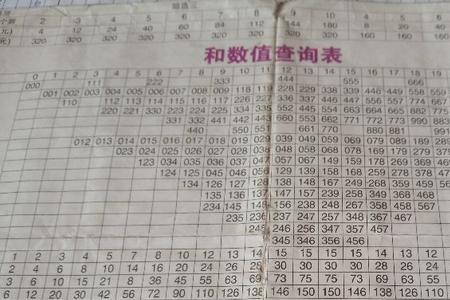 2 3 4 5 6 7 8
4 12 24 40 60 84 112 144 180 8 20 40
320 320 320 320 320 320 320 320 320 160 160 80
和数值查询表
0 1 2 3 4 5 6 7 8 9 10 11 12 13 14 15 16 17 18 19
000 111 222 333 444 555 666
001 002 003 004 005 006 007 008 009 118 119 228 229 338 339 448 449 558 559
110 112 113 114 115 116 117 226 227 336 337 446 447 556 557 774 667
220 221 330 223 224 225 334 335 552 445 554 663 664 665 882 775
331 332 441 442 443 660 553 662 771 772 773 990 883
440 550 551 661 770 880 881
012 013 014 015 016 017 018 019 029 039 049 059 069 079 089 189
023 024 025 026 027 028 038 048 058 068 078 169 179 279
123 034 035 036 037 047 057 067 149 159 178 269 369
124 125 045 046 056 129 139 158 168 259 278 378
134 126 127 128 138 148 167 249 268 359 459
135 136 137 147 157 239 258 349 368 468
234 145 146 156 238 248 267 358 458 567
235 236 237 247 257 348 367 467
245 246 256 347 357 457
345 346 356 456
1 1 2 3 4 5 7 8 10 12 13 14 14 15 15 14 13 12
1 2 4 6 8 10 14 16 20 24 26 28 30 30 30 28 26 24
1 3 6 10 15 21 28 36 45 55 63 69 73 75 75 73 69 63 55
2 6 12 20 30 42 56 72 90 110 126 138 146 150 150 146 138 126 110